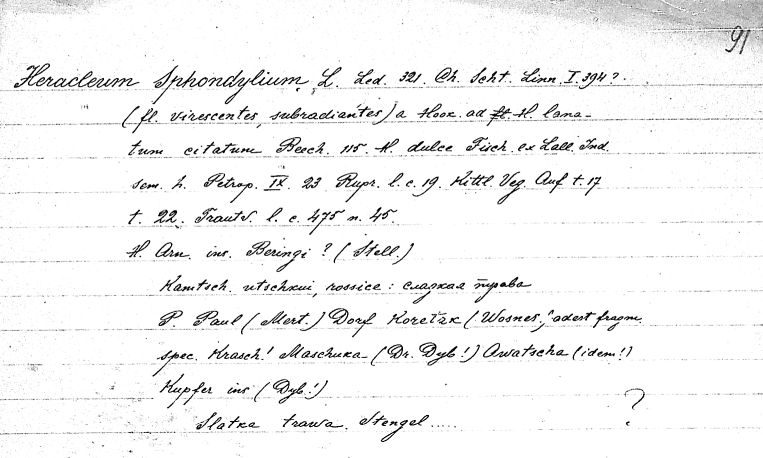 91
Heracleum Sphondylium, L. Led. 321. Ch. Scht. Linn. I. 394?
(fl. virescentes, subradiantes) a Hook. ad H. lana-
tum citatum Beech. 115. H. dulce Fisch. ex Lall. Ind.
sem. h. Petrop. IX. 23 Rupr. l. c. 19. Kittl. Veg. Auf t. 17
t. 22. Trautv. l. c. 475 n. 45.
H. Arn. ins. Beringi? (Stell.)
Kamtsch. utschkui, rossice: сладкая трава
P. Paul (Mert.) Dorf Koretzk (Wosnes.! adest fragm.
spec. Krasch! Maschuka (Dr. Dyb!) Awatscha (idem!)
Kupfer ins (Dyb!)
Slatka trawa. Stengel..... ?